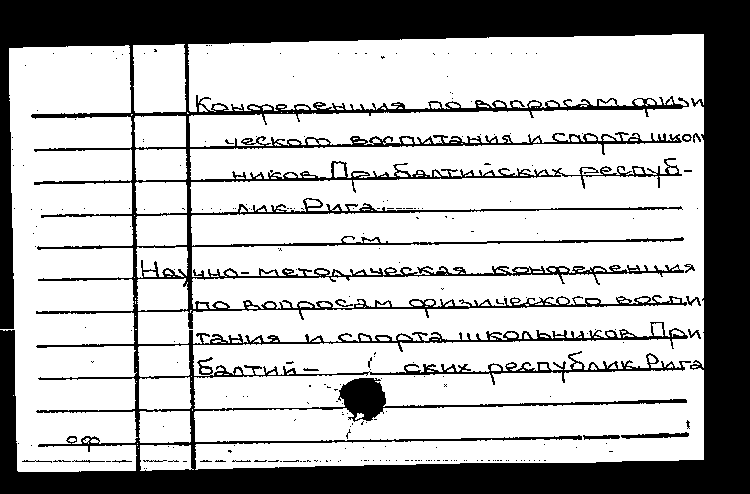 Конференция по вопросам физи
ческого воспитания и спорта школь
ников Прибалтийских респуб-
лик. Рига.
см.
Научно-методическая конференция
по вопросам физического воспи
тания и спорта школьников При
балтий- ских республик. Рига
оф